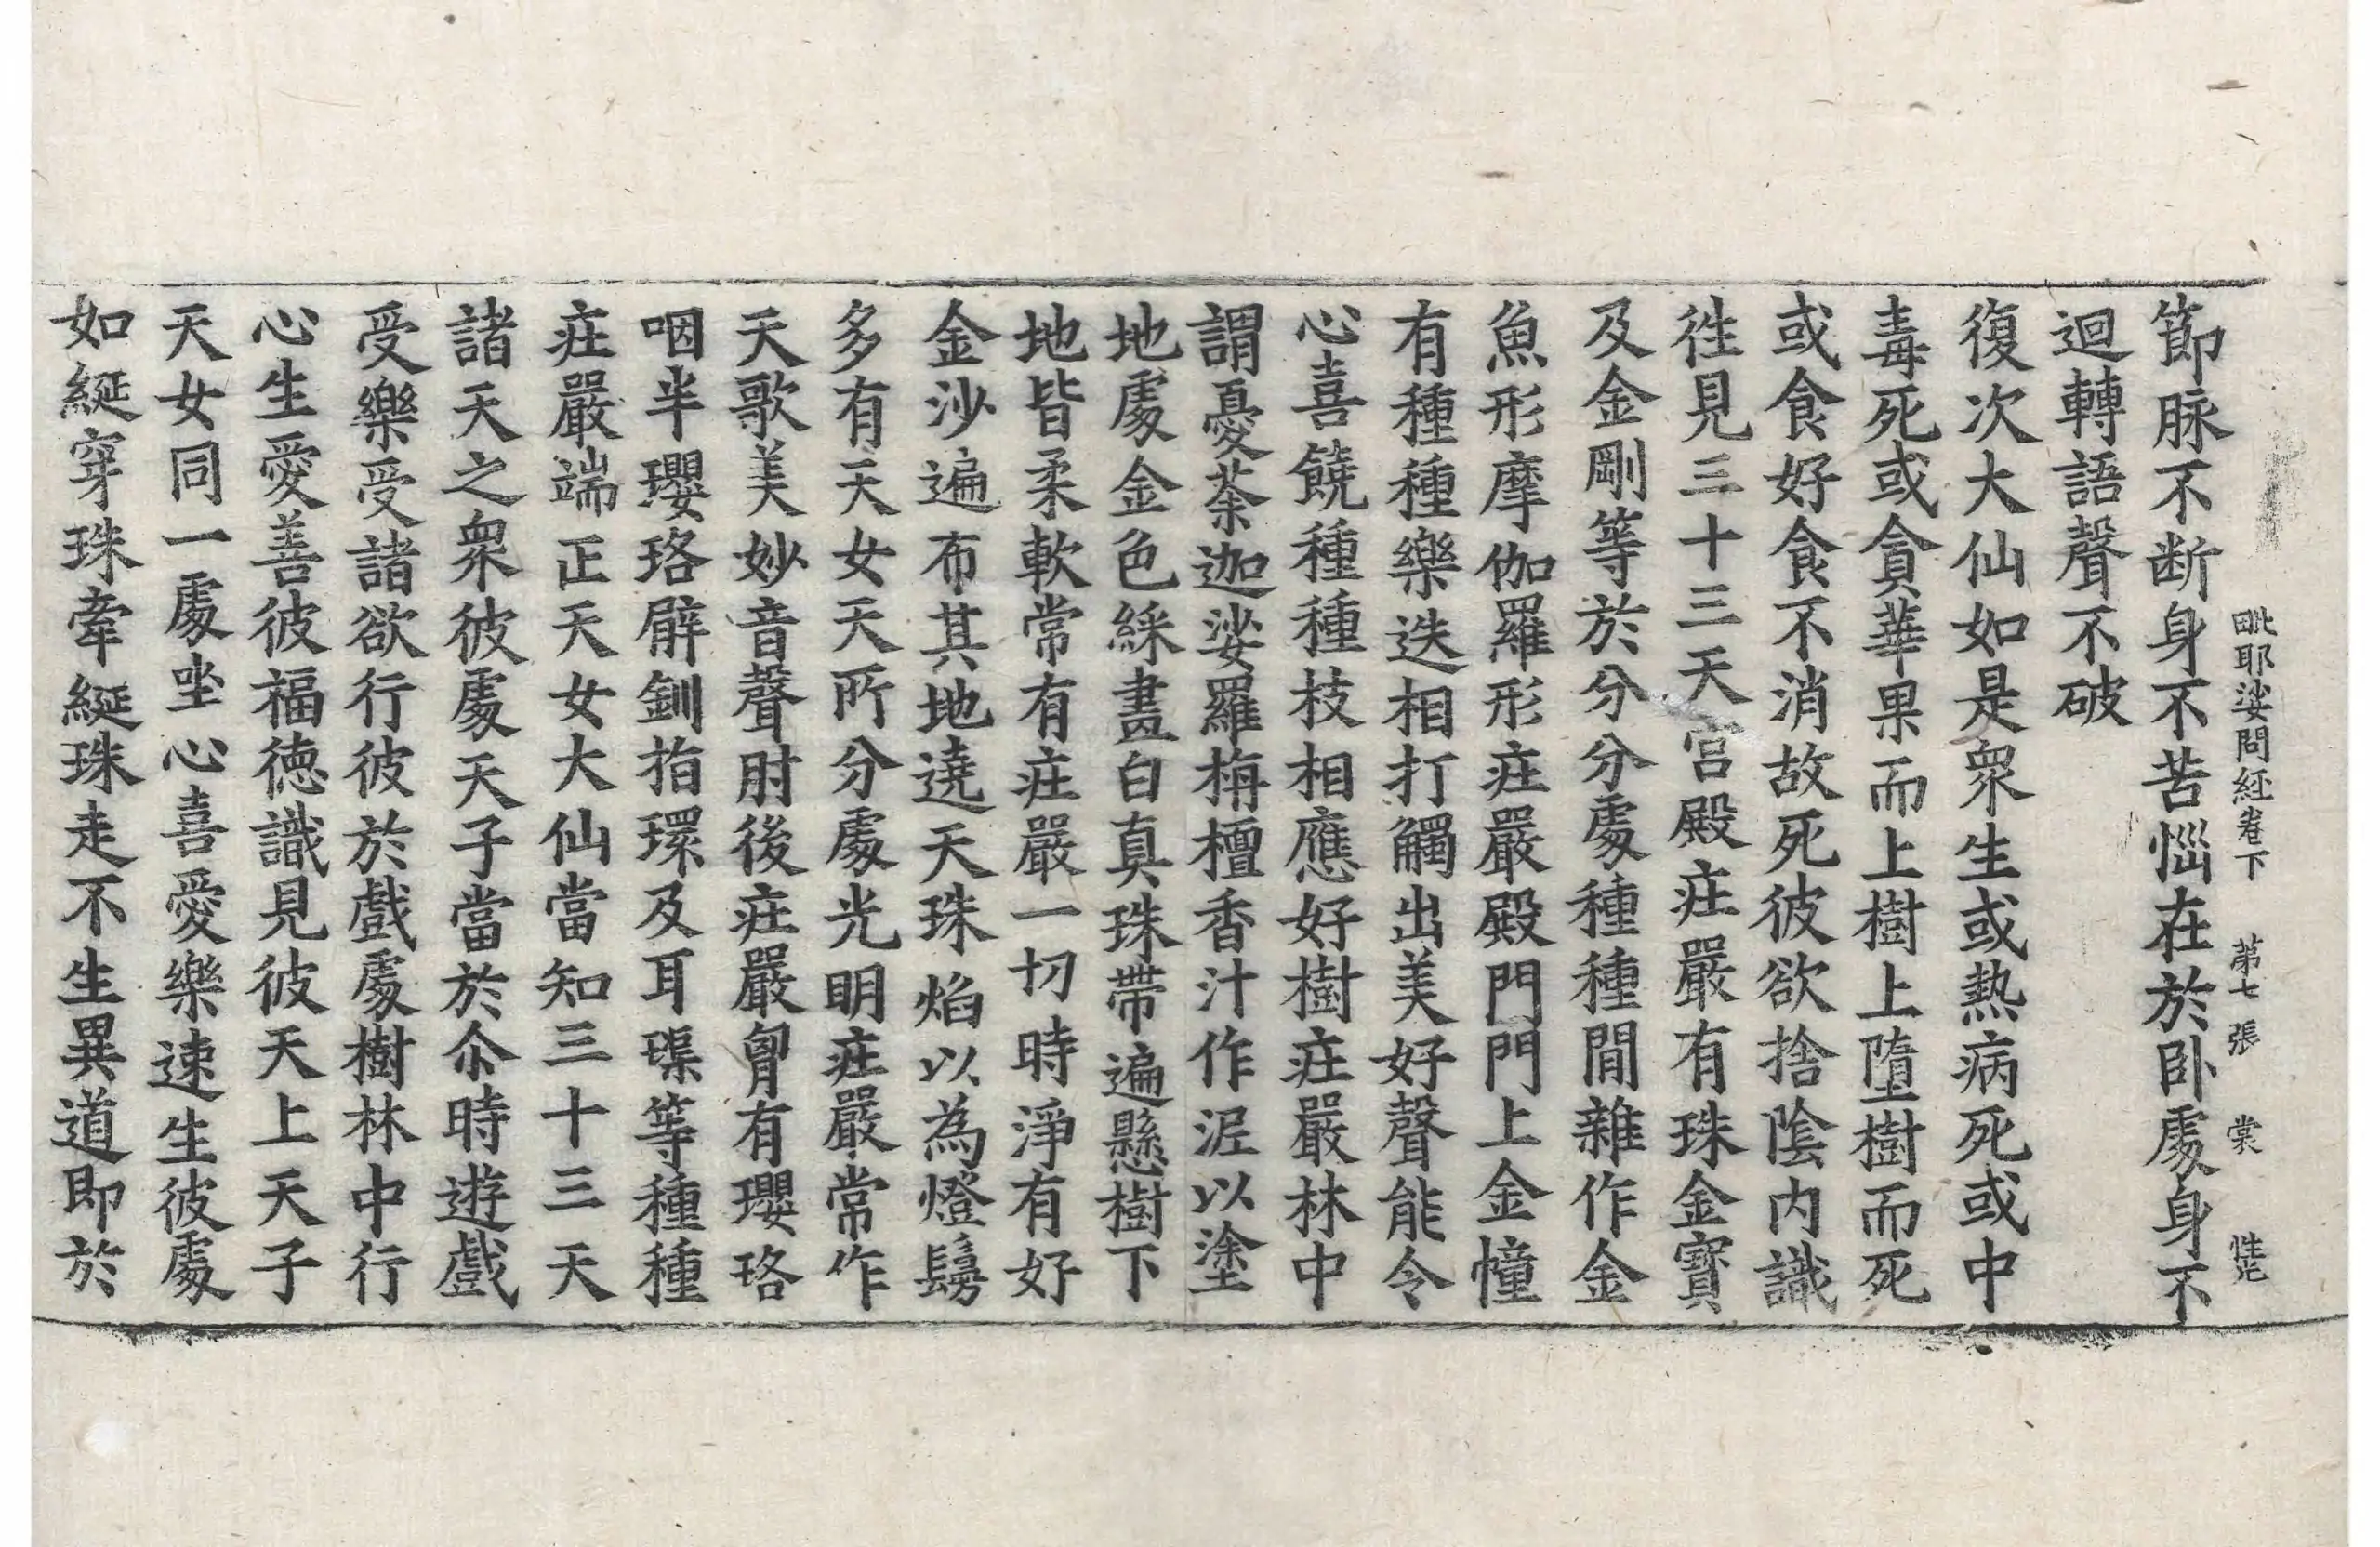 毗耶娑問經卷下　第七張　裳　性光
節脉不断身不苦惱在於卧處身不
迴轉語聲不破
復次大仙如是衆生或熱病死或中
毒死或貪華果而上樹上墮樹而死
或食好食不消故死彼欲捨陰内識
徃見三十三天宫殿㽵嚴有珠金寶
及金剛等於分分處種種間雜作金
魚形摩伽羅形㽵嚴殿門門上金幢
有種種樂迭相打觸出美好聲能令
心喜饒種種枝相應好樹㽵嚴林中
謂憂荼迦娑羅栴檀香汁作泥以塗
地處金色綵畫白真珠帶遍懸樹下
地皆柔軟常有㽵嚴一切時淨有好
金沙遍布其地遶天珠焰以為燈鬘
多有天女天所分處光明㽵嚴常作
天歌美妙音聲肘後㽵嚴胷有瓔珞
咽半瓔珞臂釧指環及耳璖等種種
㽵嚴端正天女大仙當知三十三天
諸天之衆彼處天子當於尒時遊戲
受樂受諸欲行彼於戲處樹林中行
心生愛善彼福徳識見彼天上天子
天女同一處坐心喜愛樂速生彼處
如綖穿珠牽綖珠走不生異道即於